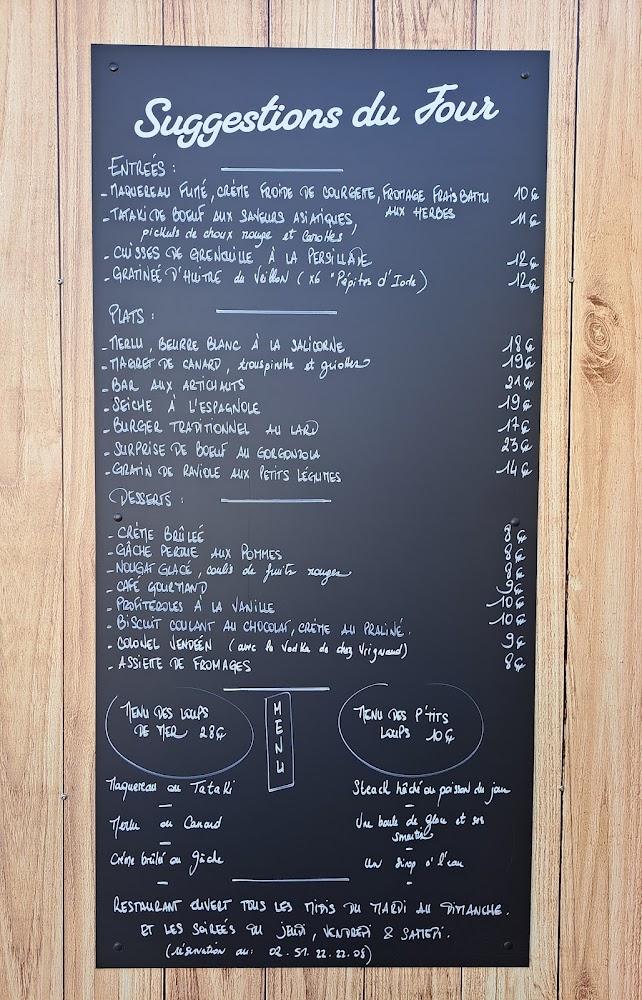 Suggestions du Jour
ENTREÉS :
- MAQUEREAU FUMÉ, CRÈME FROIDE DE COURGETTE, FROMAGE FRAIS BATTU 10€
AUX HERBES
- TATAKI DE BOEUF AUX SAVEURS ASIATIQUES, 11€
pickels de choux rouge et carottes
- CUISSES DE GRENOUILLE À LA PERSILLADE 12€
- GRATINEÉ D'HUITRE du Veillon ( x6 "Pépites d'Iode) 12€
PLATS :
- MERLU, BEURRE BLANC À LA SALICORNE 18€
- MAGRET DE CANARD, trouspinette et griottes 19€
- BAR AUX ARTICHAUTS 21€
- SEICHE À L'ESPAGNOLE 19€
- BURGER TRADITIONNEL AU LARD 17€
- SURPRISE DE BOEUF AU GORGONZOLA 23€
- GRATIN DE RAVIOLE AUX PETITS LÉGUMES 14€
DESSERTS :
- CRÉME BRÛLEÉ 8€
- GÂCHE PERDUE AUX POMMES 8€
- NOUGAT GLACÉ, coulis de fruits rouges 8€
- CAFÉ GOURMAND 9€
- PROFITEROLES À LA VANILLE 10€
- BISCUIT COULANT AU CHOCOLAT, CRÉME AU PRALINÉ. 10€
- COLONEL VENDÉEN ( avec la Vodka de chez Vrignaud) 9€
- ASSIETTE DE FROMAGES 8€
MENU DES LOUPS
DE MER 28€
MENU
MENU DES P'TITS
LOUPS 10€
Maquereau ou Tataki
Merlu ou Canard
Crème brûlé ou gâche
Steack hâché ou poisson du jour
Une boule de glace et ses
smarties
Un sirop à l'eau
RESTAURANT OUVERT TOUS LES MIDIS DU MARDI AU DIMANCHE.
ET LES SOIREÉS DU JEUDI, VENDREDI & SAMEDI.
(réservation au: 02. 51. 22. 22. 08)